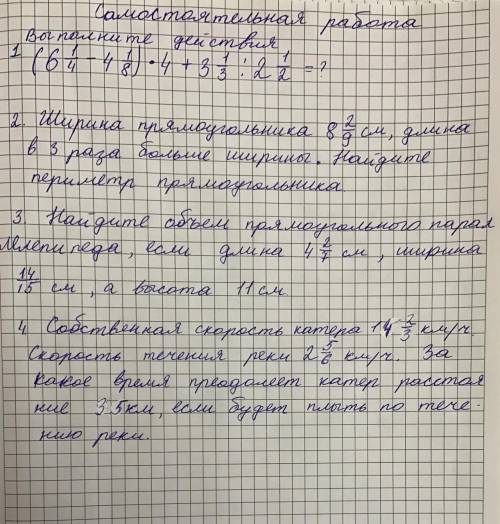 Самостоятельная работа
Выполните действия
1 (6 1/4 - 4 1/8) • 4 + 3 1/3 : 2 1/2 = ?
2. Ширина прямоугольника 8 2/9 см, длина
в 3 раза больше ширины. Найдите
периметр прямоугольника
3. Найдите объем прямоугольного парал
лелепипеда, если длина 4 2/7 см, ширина
14/15 см, а высота 11 см.
4 Собственная скорость катера 14 2/3 км/ч.
Скорость течения реки 2 5/6 км/ч. За
какое время преодалеет катер расстоя
ние 3.5км, если будет плыть по тече-
нию реки.